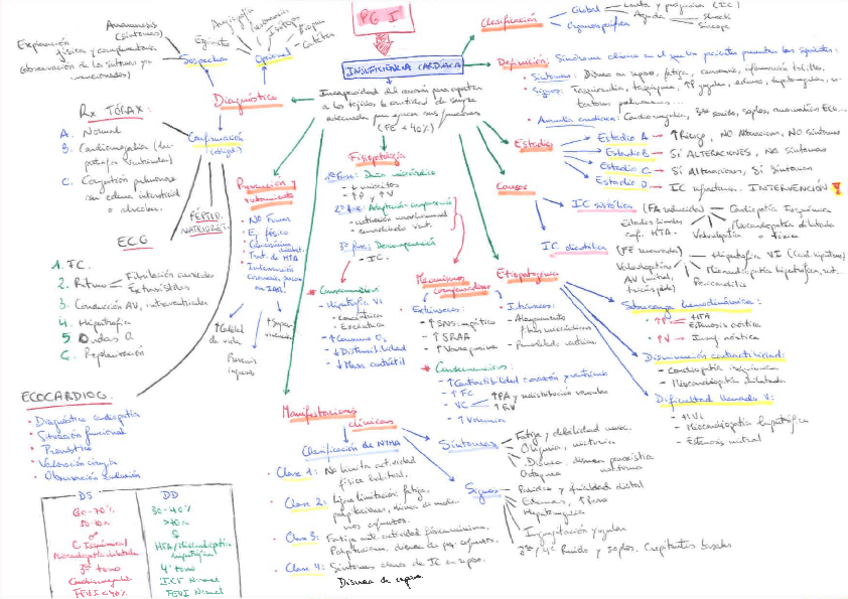 PG I
INSUFICIENCIA CARDÍACA
Incapacidad del corazón para aportar
a los tejidos la cantidad de sangre
adecuada para ejercer sus funciones
(FE < 40%)
Clasificación
Global
Organoespecífica
Aguda
Shock
Síncope
Definición:
Síndrome clínico en el que los pacientes presentan los siguientes:
• Síntomas: Disnea en reposo, fatiga, cansancio, inflamación tobillos.
• Signos: Taquicardia, taquipnea, ↑P yugular, edemas, hepatomegalia,
Estadio
Estadio A → ↑Riesgo, NO Alteraciones, NO Síntomas
Estadio B → SÍ ALTERACIONES, NO Síntomas
Estadio C → SÍ Alteraciones, SÍ Síntomas
Estadio D → IC refractaria. INTERVENCIÓN
Causas
IC sistólica (FA reducida)
Cardiopatía Isquémica
Miocardiopatía dilatada
Valvulopatía
HTA.
IC diastólica
Valvulopatías
AV (mitral,
tricúspide)
Hipertrofia VI
Miocardiopatía hipertrófica
Pericarditis
Etiopatogenia
Sobrecarga hemodinámica:
• ↑P
HTA
Estenosis aórtica
• ↑V → Insuf aórtica
Disminución contractilidad:
- Cardiopatía isquémica
- Miocardiopatía dilatada
Dificultad llenado V:
- ↑VI
- Miocardiopatía hipertrófica
- Estenosis mitral
Diagnóstico
Sospecha
Anamnesis
(síntomas)
Exploración
física y complementaria
Opcional
Angiografía
Isótopos
Biopsia
Confirmación
(obligat.)
RX TÓRAX:
A. Normal
B. Cardiomegalia
C. Congestión pulmonar
con edema intersticial
o alveolar.
PÉPTIDO
NATRIURÉT.
ECG
1. FC.
2. Ritmo
Fibrilación auricular
Extrasístoles
3. Conducción AV, intraventricular
4. Hipertrofia
5. Ondas Q
6. Repolarización
ECOCARDIOG:
• Diagnóstico cardiopatía
• Situación funcional
• Pronóstico
• Valoración cirugía
• Observación evolución
DS
30-70%
C. Isquémica/
Miocardiopatía dilatada
3er tono
Cardiomegalia
FEVI <40%
DD
30-40%
HTA/Miocardiopatía
hipertrófica
4º tono
ICT Normal
FEVI Normal
Prevención y
tratamiento
- NO Fumar
- Ej. físico
- Trat. de HTA
↑Calidad
de vida
↑Super-
vivencia
Prevenir
ingresos
Fisiopatología
1ª Fase: Daño miocárdico
- ↑P y ↑V
2ª fase: Adaptación compensación
- activación neurohormonal
- remodelado vent.
3ª fase: Descompensación
- IC.
* Consecuencias:
- Hipertrofia VI
- concéntrica
- Excéntrica
- ↑Consumo O2
- ↓Distensibilidad
- ↓Masa contráctil
Mecanismos
compensadores
Extrínsecos:
- ↑SNSimpático
- ↑SRAA
- ↑Vasopresina
Intrínsecos:
- Alargamiento
fibras miocárdicas
- Remodelado ventric.
* Consecuencias:
- ↑Contractibilidad corazón y ventrículo
- ↑FC
- VC
↑PA y redistribución vascular
↑RV
- ↑Volemia
Manifestaciones
clínicas
Clasificación de NYHA
• Clase 1: No limita actividad
física habitual.
• Clase 2: Ligera limitación fatiga,
palpitaciones, disnea
• Clase 3: Fatiga ante actividad física mínima.
Palpitaciones, disnea de peq. esfuerzos.
• Clase 4: Síntomas claros de IC en reposo.
Disnea de reposo.
Síntomas
Fatiga y debilidad musc.
Oliguria, nicturia
Disnea: disnea paroxística
nocturna
Ortopnea
Signos
Palidez y frialdad distal
Edemas, ↑Peso
Hepatomegalia
Ingurgitación yugular
3er/4º Ruido y soplos. Crepitantes basales